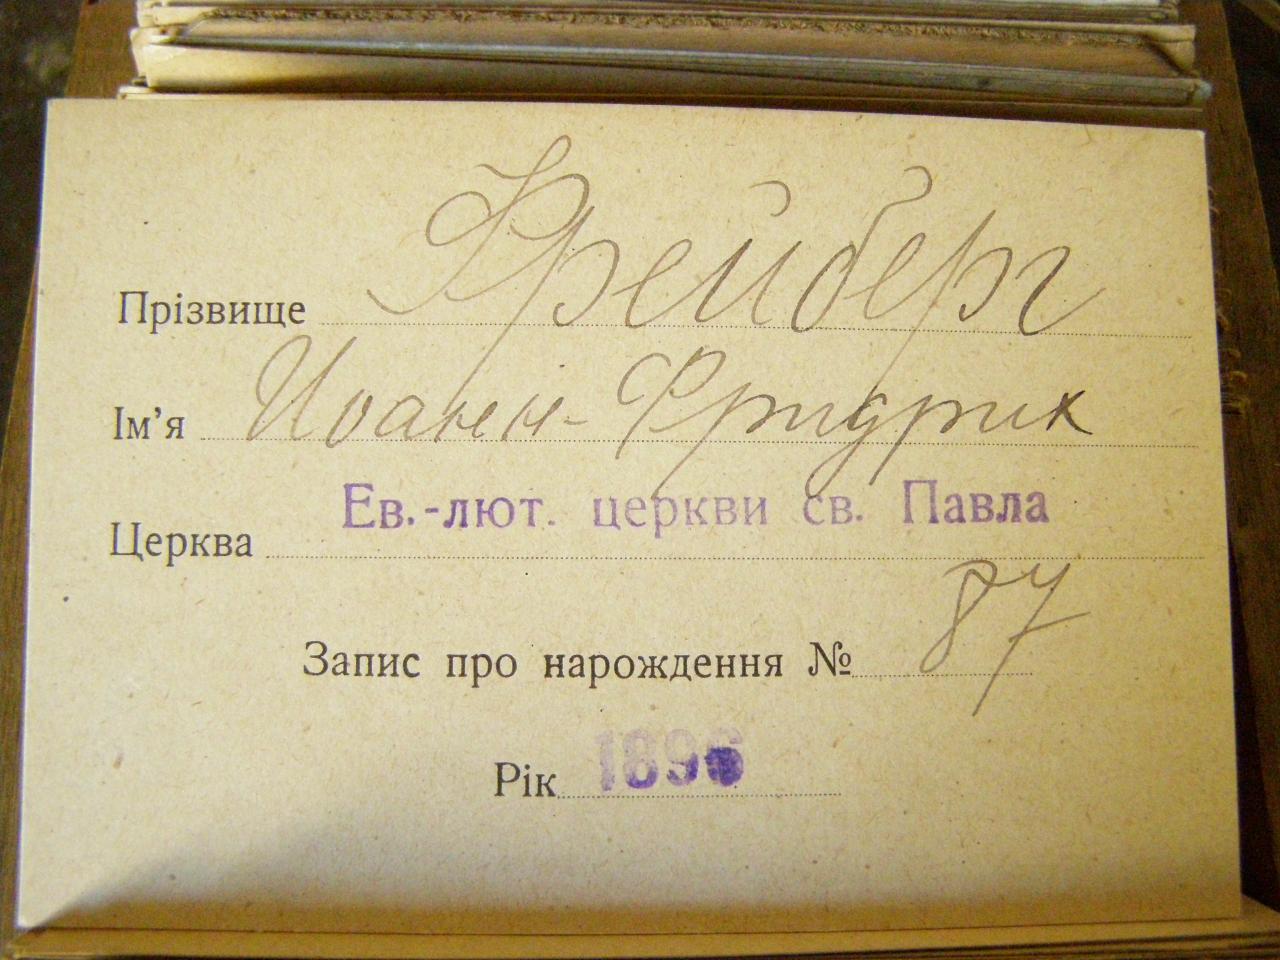 Прізвище Фрейберг
Ім'я Иоанн-Фридрих
Церква Ев.-лют. церкви св. Павла
Запис про нарождення № 87
Рік 1896